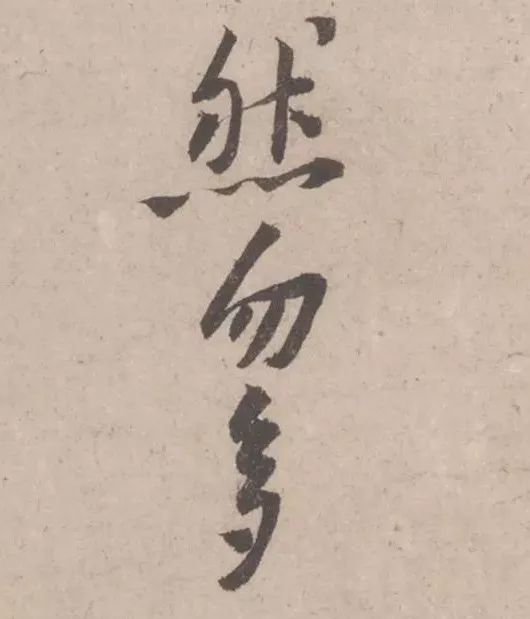 然勿多